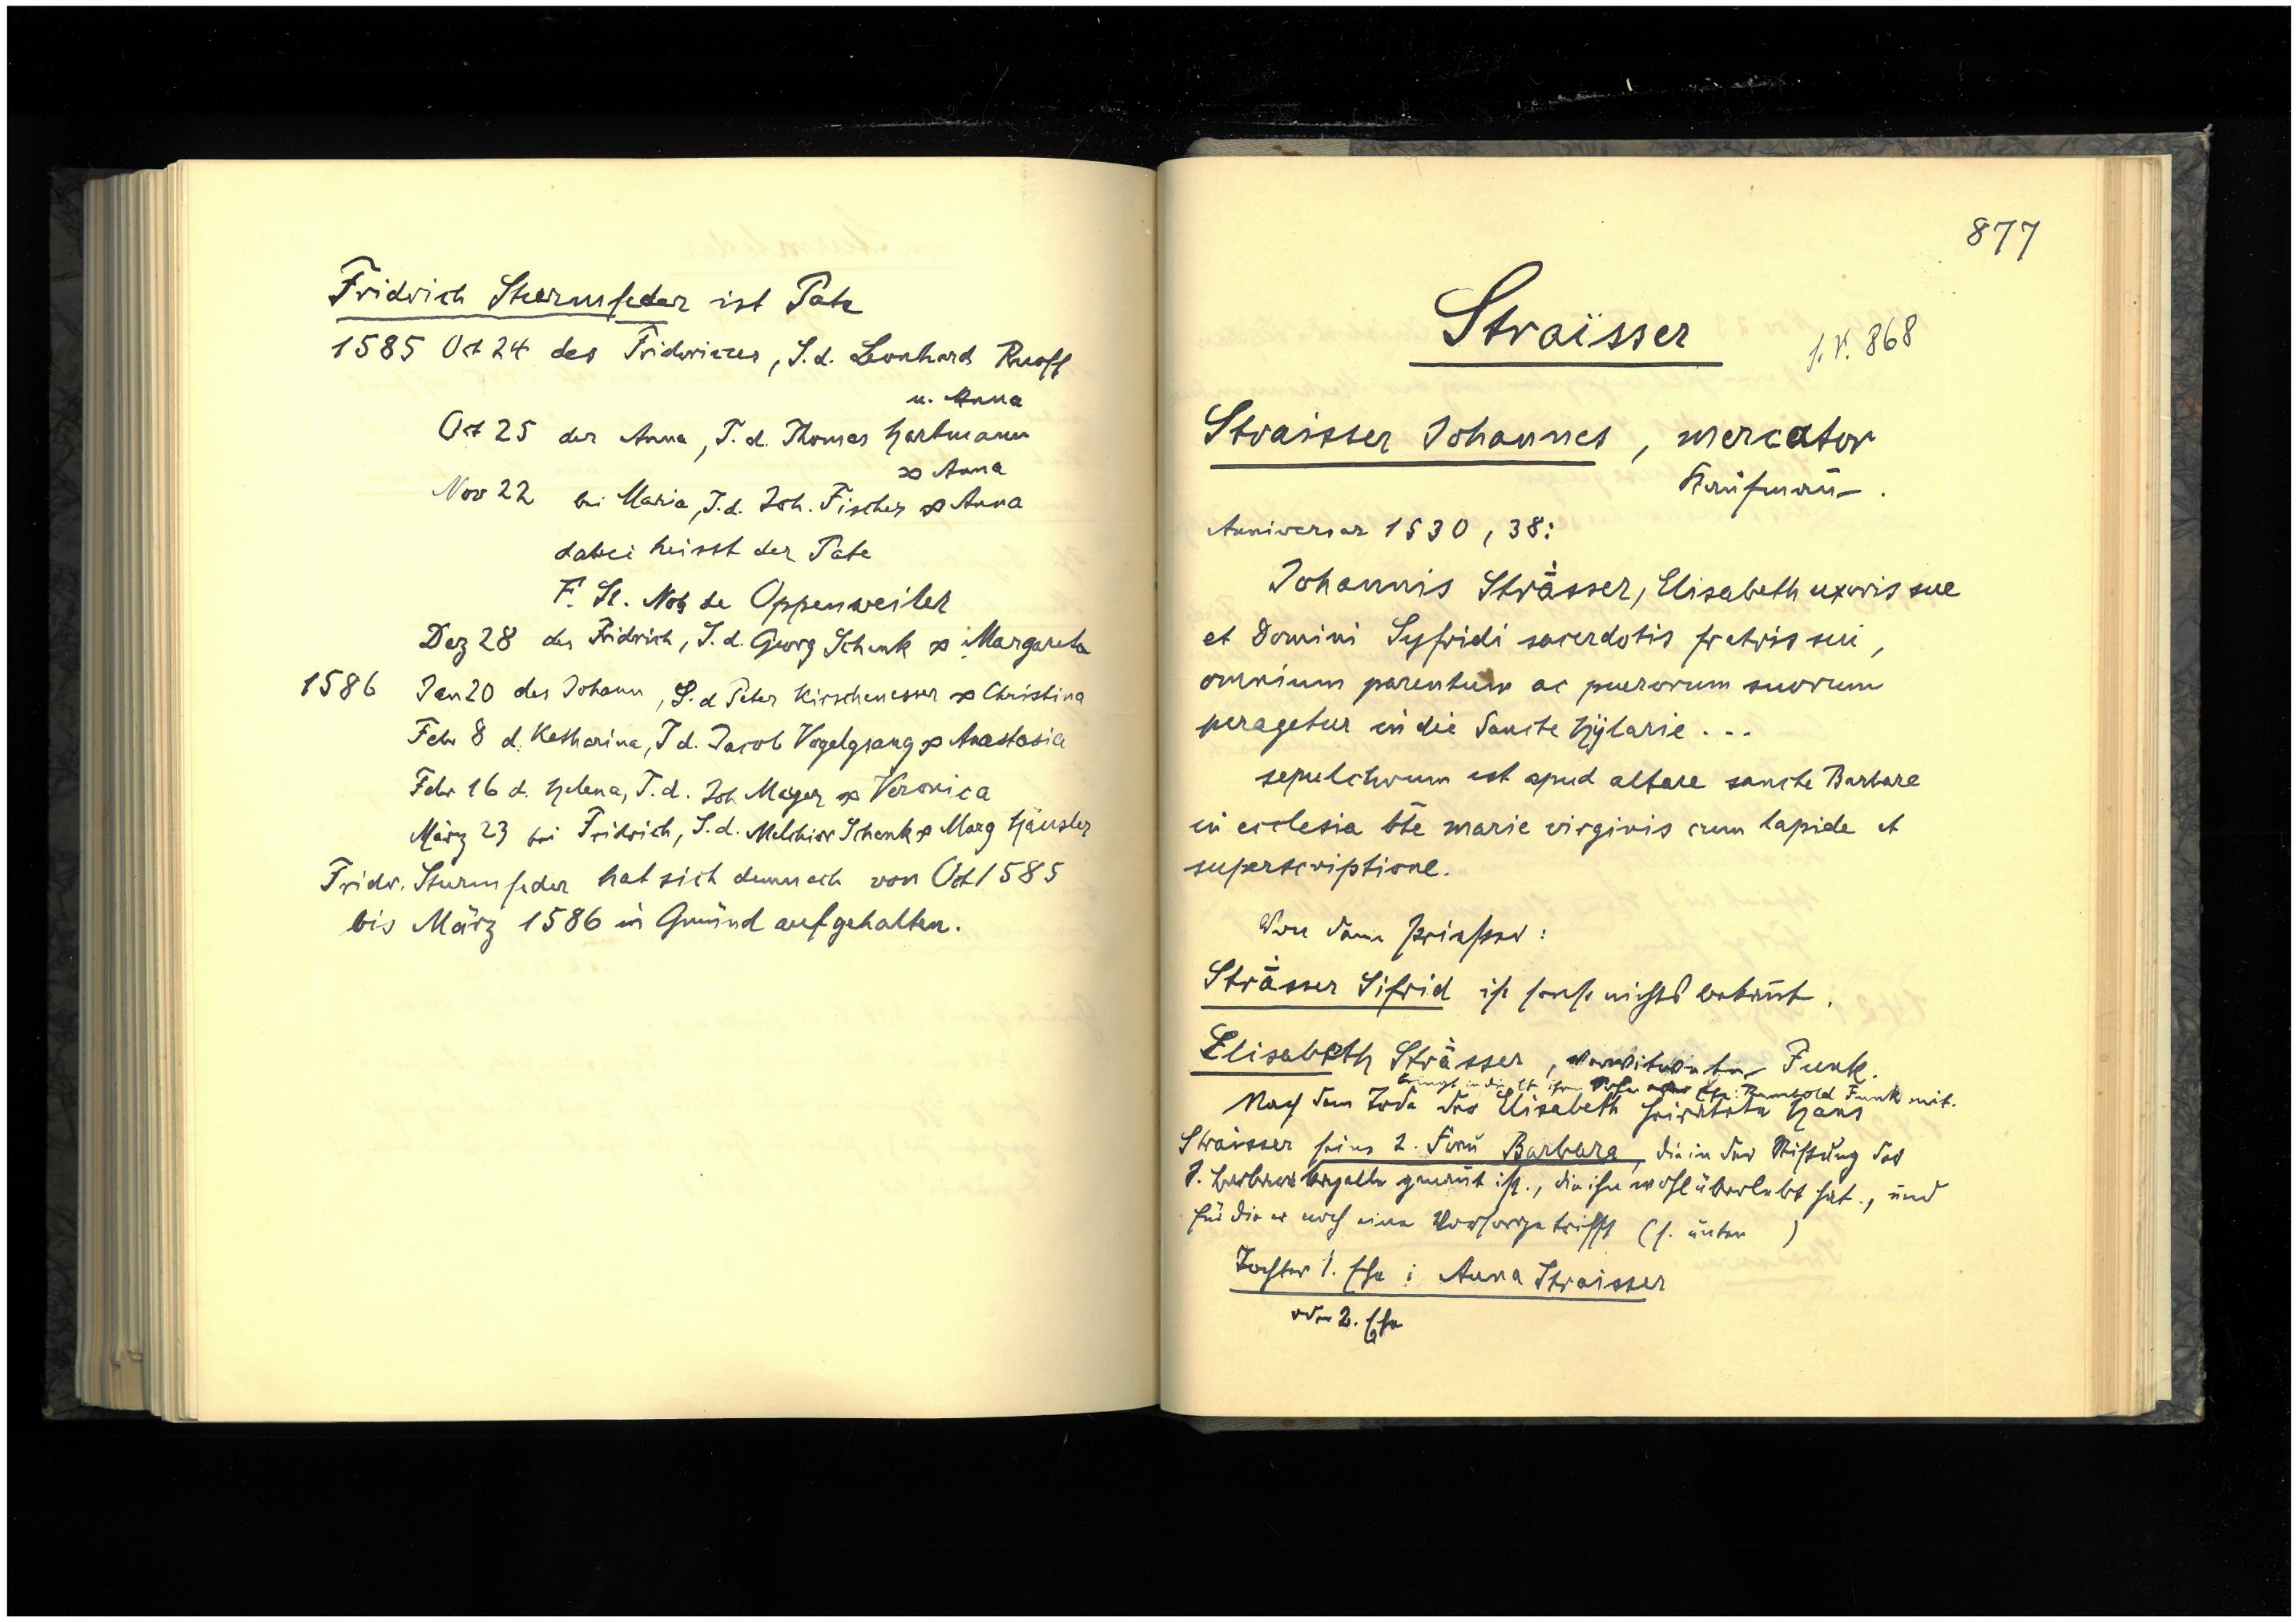 Fridrich Sturmfeder ist Pate
1585 Oct 24 des Fridericus, S.d. Leonhard Ruoff
u. Anna
Oct 25 der Anna, T.d. Thomas Hartmann
∞ Anna
Nov 22 bei Maria, T.d. Joh. Fischer ∞ Anna
dabei heisst der Pate
F. St. Nob de Oppenweiler
Dez 28 des Fridrich, S.d. Georg Schenk ∞ Margareta
1586 Jan 20 des Johann, S.d Peter Kirschenesser ∞ Christina
Febr 8 d. Katharina, T d. Jacob Vogelgsang ∞ Anastasia
Febr 16 d. Helena, T.d. Joh Mayer ∞ Veronica
März 23 bei Fridrich, S.d. Melchior Schenk ∞ Marg Häusler
Fridr. Sturmfeder hat sich demnach von Oct 1585
bis März 1586 in Gmünd aufgehalten.
877
Straisser
s. S. 868
Straisser Johannes, mercator
Kaufmañ.
Anniversar 1530, 38:
Johannis Strässer, Elisabeth uxoris sue
et Domini Syfridi sacerdotis fratris sui,
omnium parentum ac puerorum suorum
peragetur in die Sancte Hÿlarie ...
sepulchrum est apud altare sancte Barbare
in ecclesia bte marie virginis cum lapide et
superscriptione.
Von dem Priester:
Strässer Sifrid ist sonst nichts bekañt.
Elisabeth Strässer, verwitwete Funk.
bringt in die Ehe ihren Sohn Rembold Funk mit.
Nach dem Tode der Elisabeth heiratete Hans
Straisser seine 2. Frau Barbara, die in der Stiftung der
S. kapelle genañt ist, die ihn wohl überlebt hat, und
für die er noch eine Vorsorge trifft (s. unten )
Tochter 1. Ehe: Anna Straisser
oder 2. Ehe